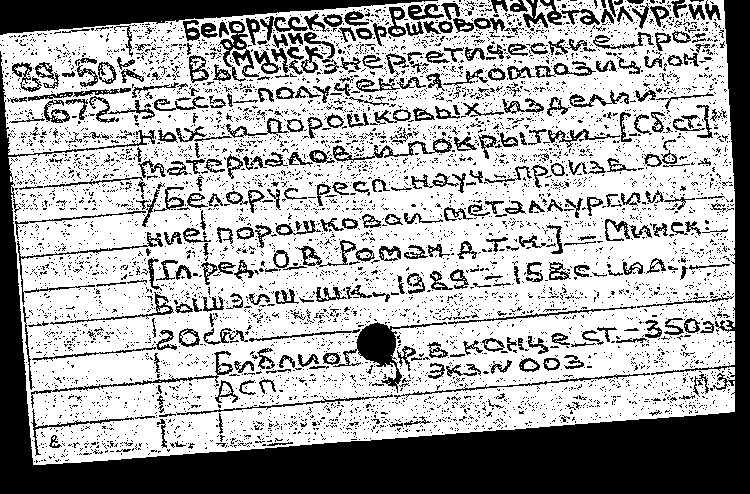 Белорусское респ. науч. пр
об-ние порошковой металлургии
(Минск).
89-50К
672
Высокоэнергетические про-
цессы получения композицион-
ных и порошковых изделий,
материалов и покрытий: [Сб. ст.]
/Белорус респ науч. произв об-
ние порошковой металлургии;
[Гл. ред. О.В Роман д.т.н.] – Минск:
Вышэйш. шк., 1989. – 158с ил.;
20см.
Библиогр. в конце ст. – 350экз
ДСП Экз. N 003.
8